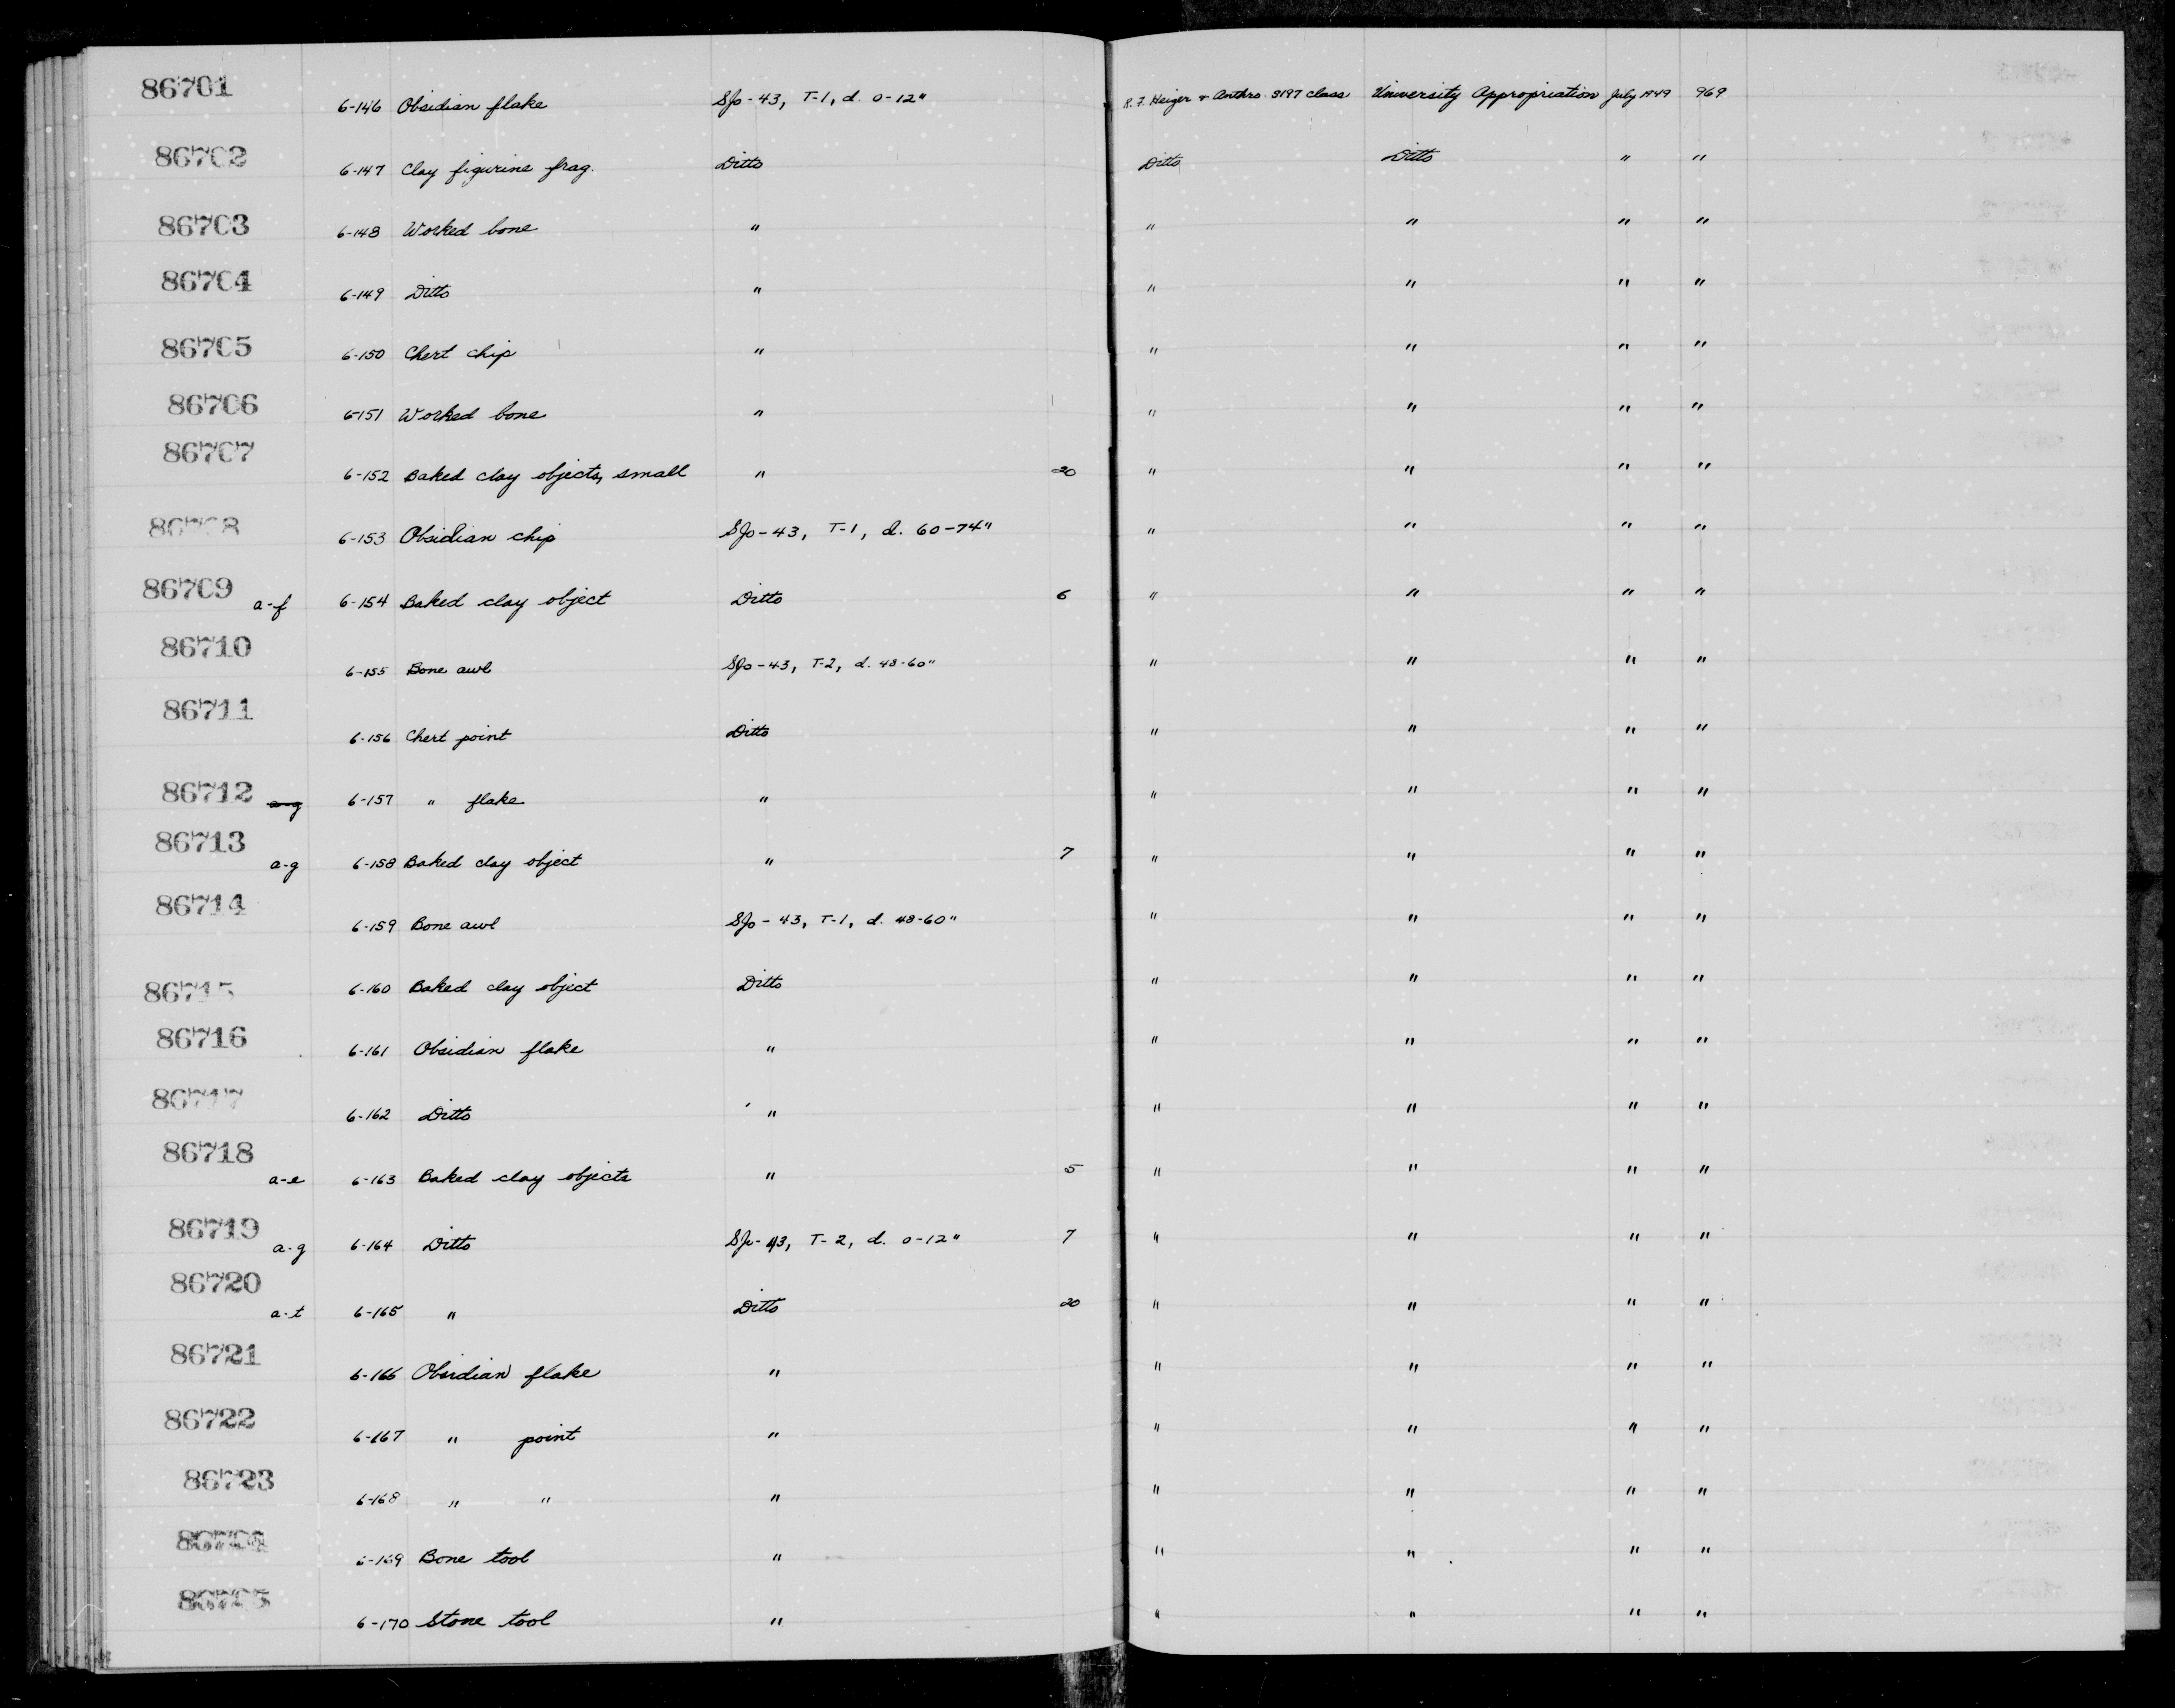 86701 6-146 Obsidian flake SJo-43, T-1, d. 0-12" R. F. Heizer & Anthro. S197 class University Appropriation July 1949 969
86702 6-147 Clay figurine frag. Ditto Ditto Ditto " "
86703 6-148 Worked bone " " " " "
86704 6-149 Ditto " " " " "
86705 6-150 Chert chip " " " " "
86706 6-151 Worked bone " " " " "
86707 6-152 Baked clay objects, small " 20 " " " "
86708 6-153 Obsidian chip SJo-43, T-1, d. 60-74" " " " "
86709 a-f 6-154 Baked clay object Ditto 6 " " " "
86710 6-155 Bone awl SJo-43, T-2, d. 48-60" " " " "
86711 6-156 Chert point Ditto " " " "
86712 a-g 6-157 " flake " " " " "
86713 a-g 6-158 Baked clay object " 7 " " " "
86714 6-159 Bone awl SJo-43, T-1, d. 48-60" " " " "
86715 6-160 Baked clay object Ditto " " " "
86716 6-161 Obsidian flake " " " " "
86717 6-162 Ditto " " " " "
86718 a-e 6-163 Baked clay objects " 5 " " " "
86719 a-g 6-164 Ditto SJo-43, T-2, d. 0-12" 7 " " " "
86720 a-t 6-165 " Ditto 20 " " " "
86721 6-166 Obsidian flake " " " " "
86722 6-167 " point " " " " "
86723 6-168 " " " " " " "
86724 6-169 Bone tool " " " " "
86725 6-170 Stone tool " " " " "